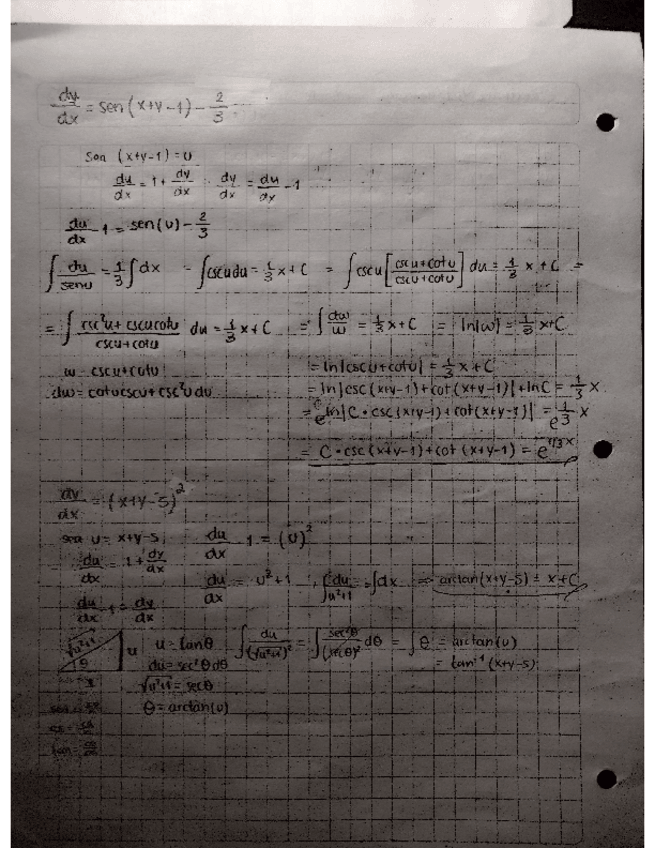 dy/dx = sen(x+y-1) - 2/3
Sea (x+y-1) = u
du/dx = 1 + dy/dx dy/dx = du/dx - 1
du/dx - 1 = sen(u) - 2/3
∫ du/senu = 1/3 ∫ dx = ∫ cscu du = 1/3 x + C = ∫ cscu [cscu + cotu / cscu + cotu] du = 1/3 x + C =
= ∫ csc²u + cscucotu / cscu + cotu du = 1/3 x + C = ∫ dw/w = 1/3 x + C = ln|w| = 1/3 x + C
w = cscu + cotu
dw = cotucscu + csc²u du
= ln|cscu + cotu| = 1/3 x + C
= ln|csc(x+y-1) + cot(x+y-1)| + lnC = 1/3 x
= e^ln|C·csc(x+y-1) + cot(x+y-1)| = e^1/3 x
= C·csc(x+y-1) + cot(x+y-1) = e^1/3 x
dy/dx = (x+y-5)²
sea u = x+y-5 du/dx - 1 = (u)²
du/dx = 1 + dy/dx
du/dx = u² + 1 , ∫ du/u²+1 = ∫ dx ⇒ arctan(x+y-5) = x + C
du/dx - 1 = dy/dx
√u²+1 u θ
u = tanθ ∫ du/(√u²+1)² = ∫ sec²θ/(secθ)² dθ = ∫ θ = arctan(u)
du = sec²θ dθ = tan⁻¹(x+y-5)
√u²+1 = secθ
θ = arctan(u)